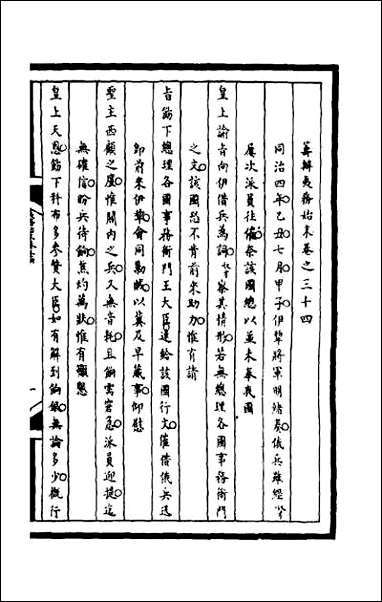 籌辦夷務始末卷之三十四
同治四年乙丑七月甲子伊犂將軍明緒奏俄兵雖經奴才
屢次派員往催祭該國總以並未奉我國
皇上諭旨向伊借兵為詞奴才察其情形若無總理各國事務衙門
之文該國恐不肯前來助力惟有請
旨飭下總理各國事務衙門王大臣速給該國行文催借俄兵迅
卽前來伊犂會同勦賊以冀及早蕆事仰慰
聖主西顧之廑惟關內之兵又無音耗且餉需窘急派員迎提迄
無確信盼兵待餉焦灼萬狀惟有籲懇
皇上天恩飭下科布多參贊大臣如有解到餉銀無論多少概行